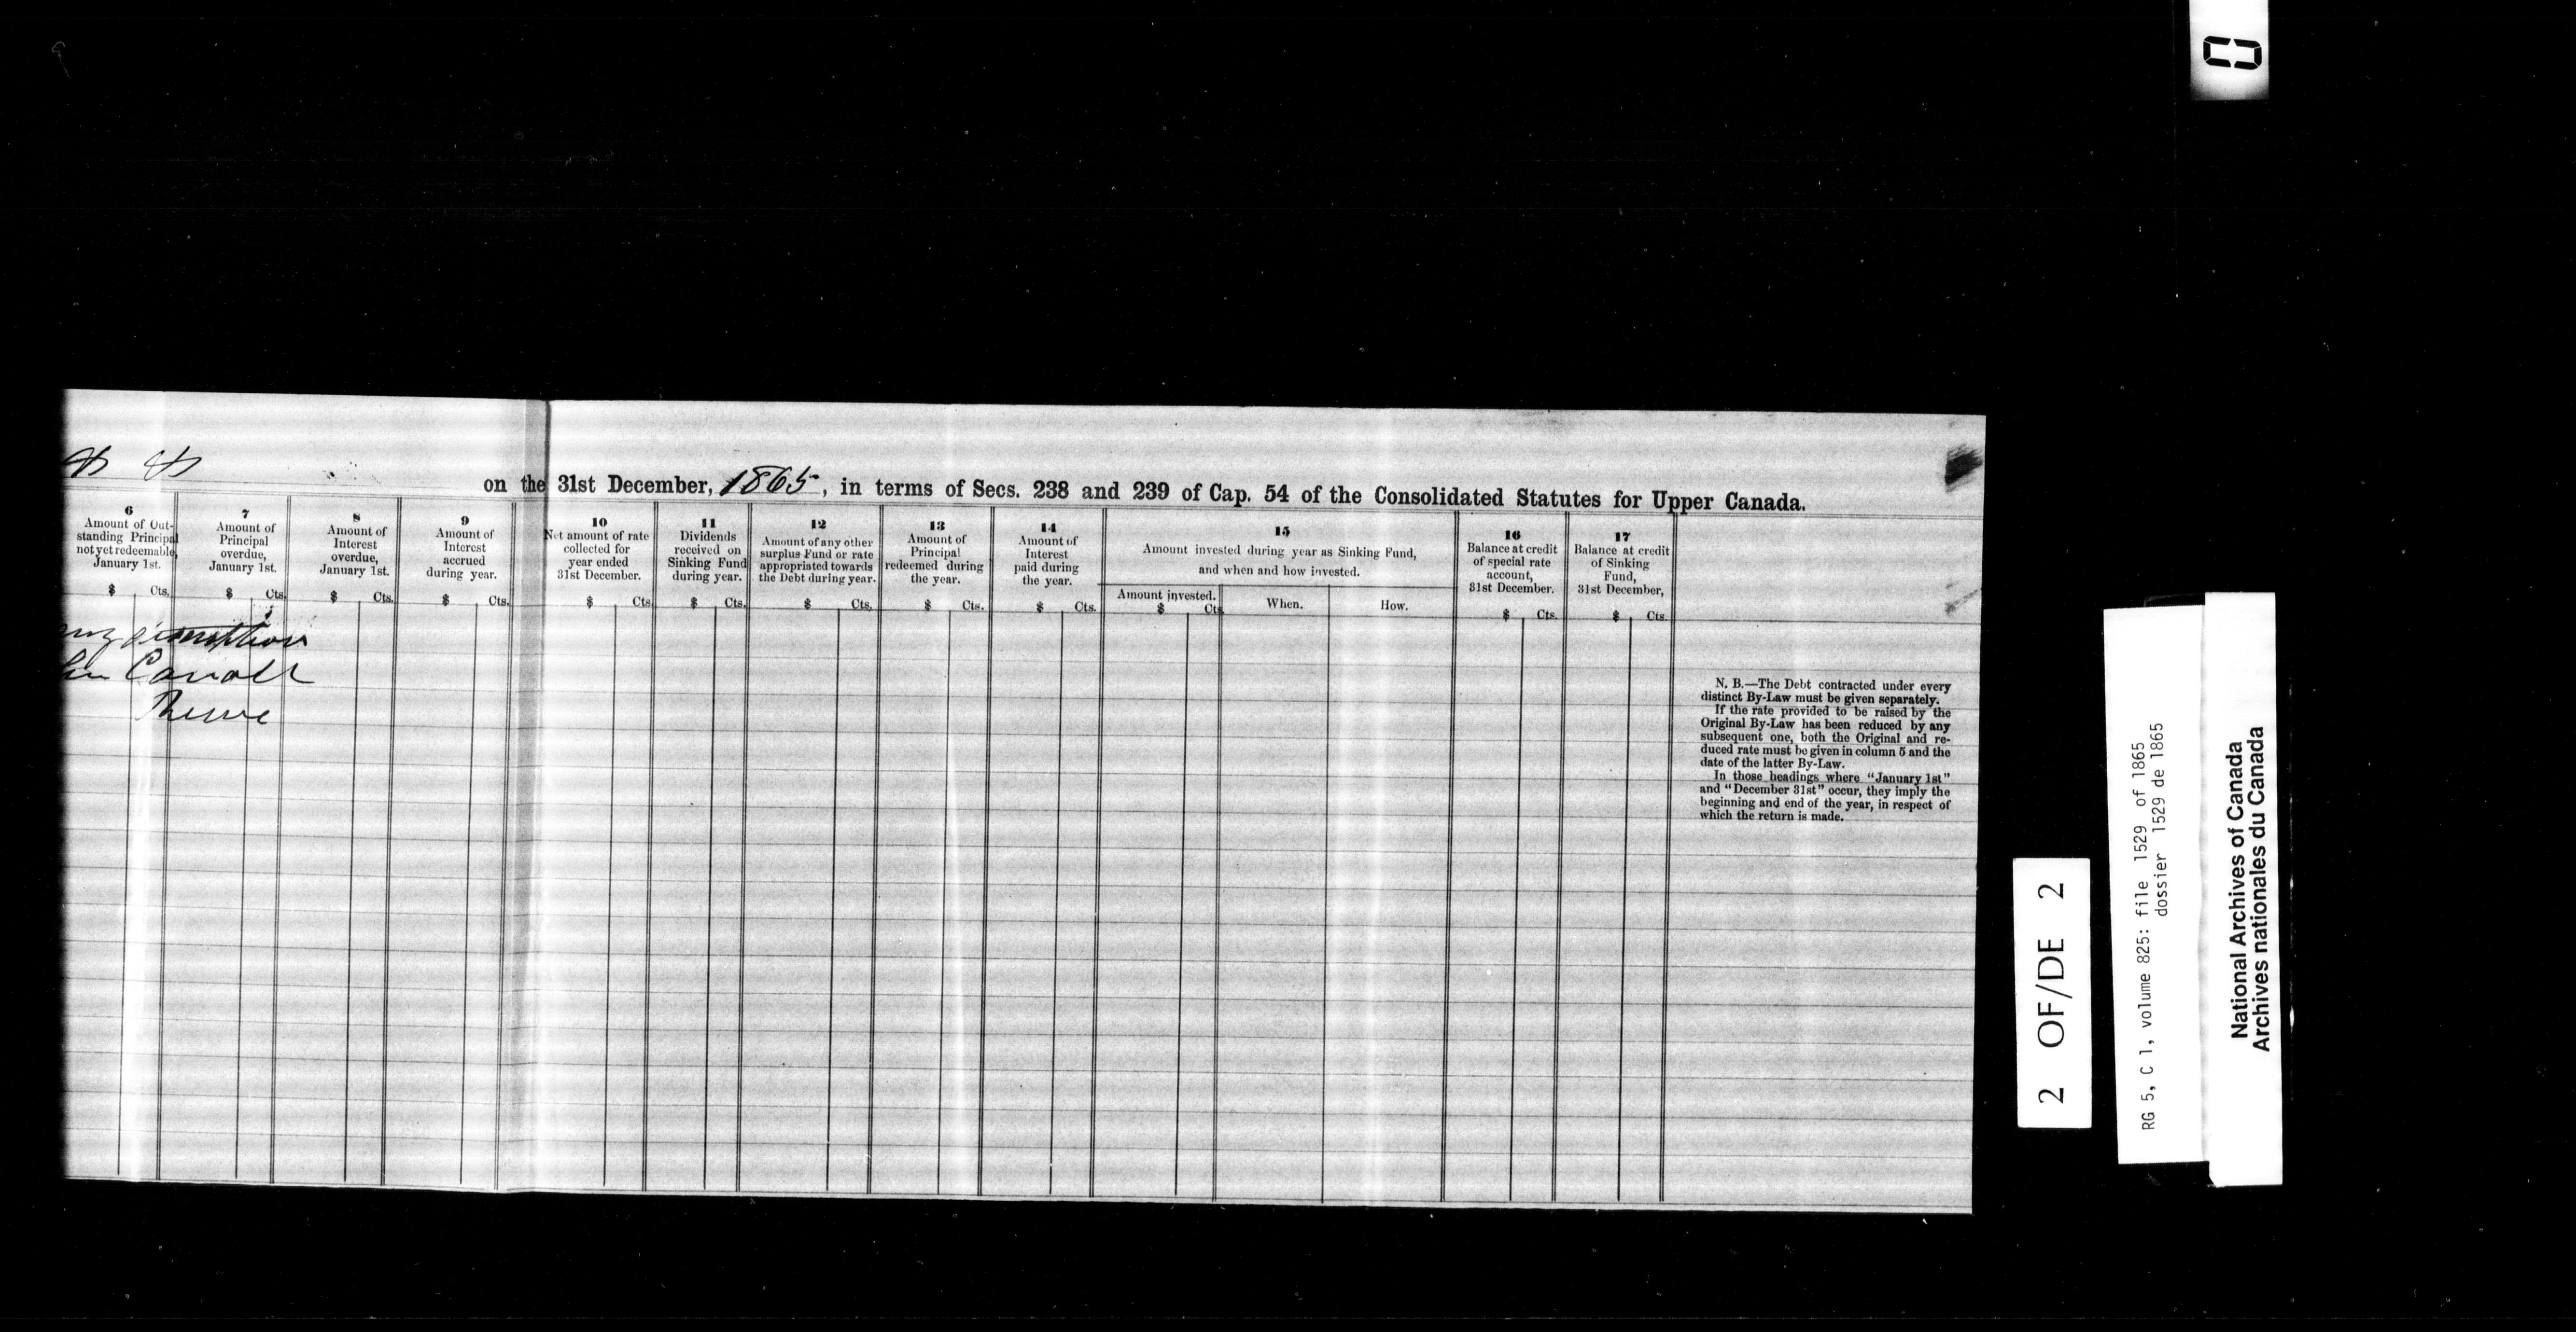 on the 31st December, 1865, in terms of Secs. 238 and 239 of Cap. 54 of the Consolidated Statutes for Upper Canada.
6
Amount of Out-
standing Principal
not yet redeemable,
January 1st.
$ Cts.
7
Amount of
Principal
overdue,
January 1st.
$ Cts.
8
Amount of
Interest
overdue,
January 1st.
$ Cts.
9
Amount of
Interest
accrued
during year.
$ Cts.
10
Net amount of rate
collected for
year ended
31st December.
$ Cts.
11
Dividends
received on
Sinking Fund
during year.
$ Cts.
12
Amount of any other
surplus Fund or rate
appropriated towards
the Debt during year.
$ Cts.
13
Amount of
Principal
redeemed during
the year.
$ Cts.
14
Amount of
Interest
paid during
the year.
$ Cts.
15
Amount invested during year as Sinking Fund,
and when and how invested.
Amount invested.
$ Cts
When.
How.
16
Balance at credit
of special rate
account,
31st December.
$ Cts.
17
Balance at credit
of Sinking
Fund,
31st December,
$ Cts.
Carroll
N. B.—The Debt contracted under every
distinct By-Law must be given separately.
If the rate provided to be raised by the
Original By-Law has been reduced by any
subsequent one, both the Original and re-
duced rate must be given in column 5 and the
date of the latter By-Law.
In those headings where "January 1st"
and "December 31st" occur, they imply the
beginning and end of the year, in respect of
which the return is made.
2 OF/DE 2
RG 5, C 1, volume 825: file 1529 of 1865
dossier 1529 de 1865
National Archives of Canada
Archives nationales du Canada